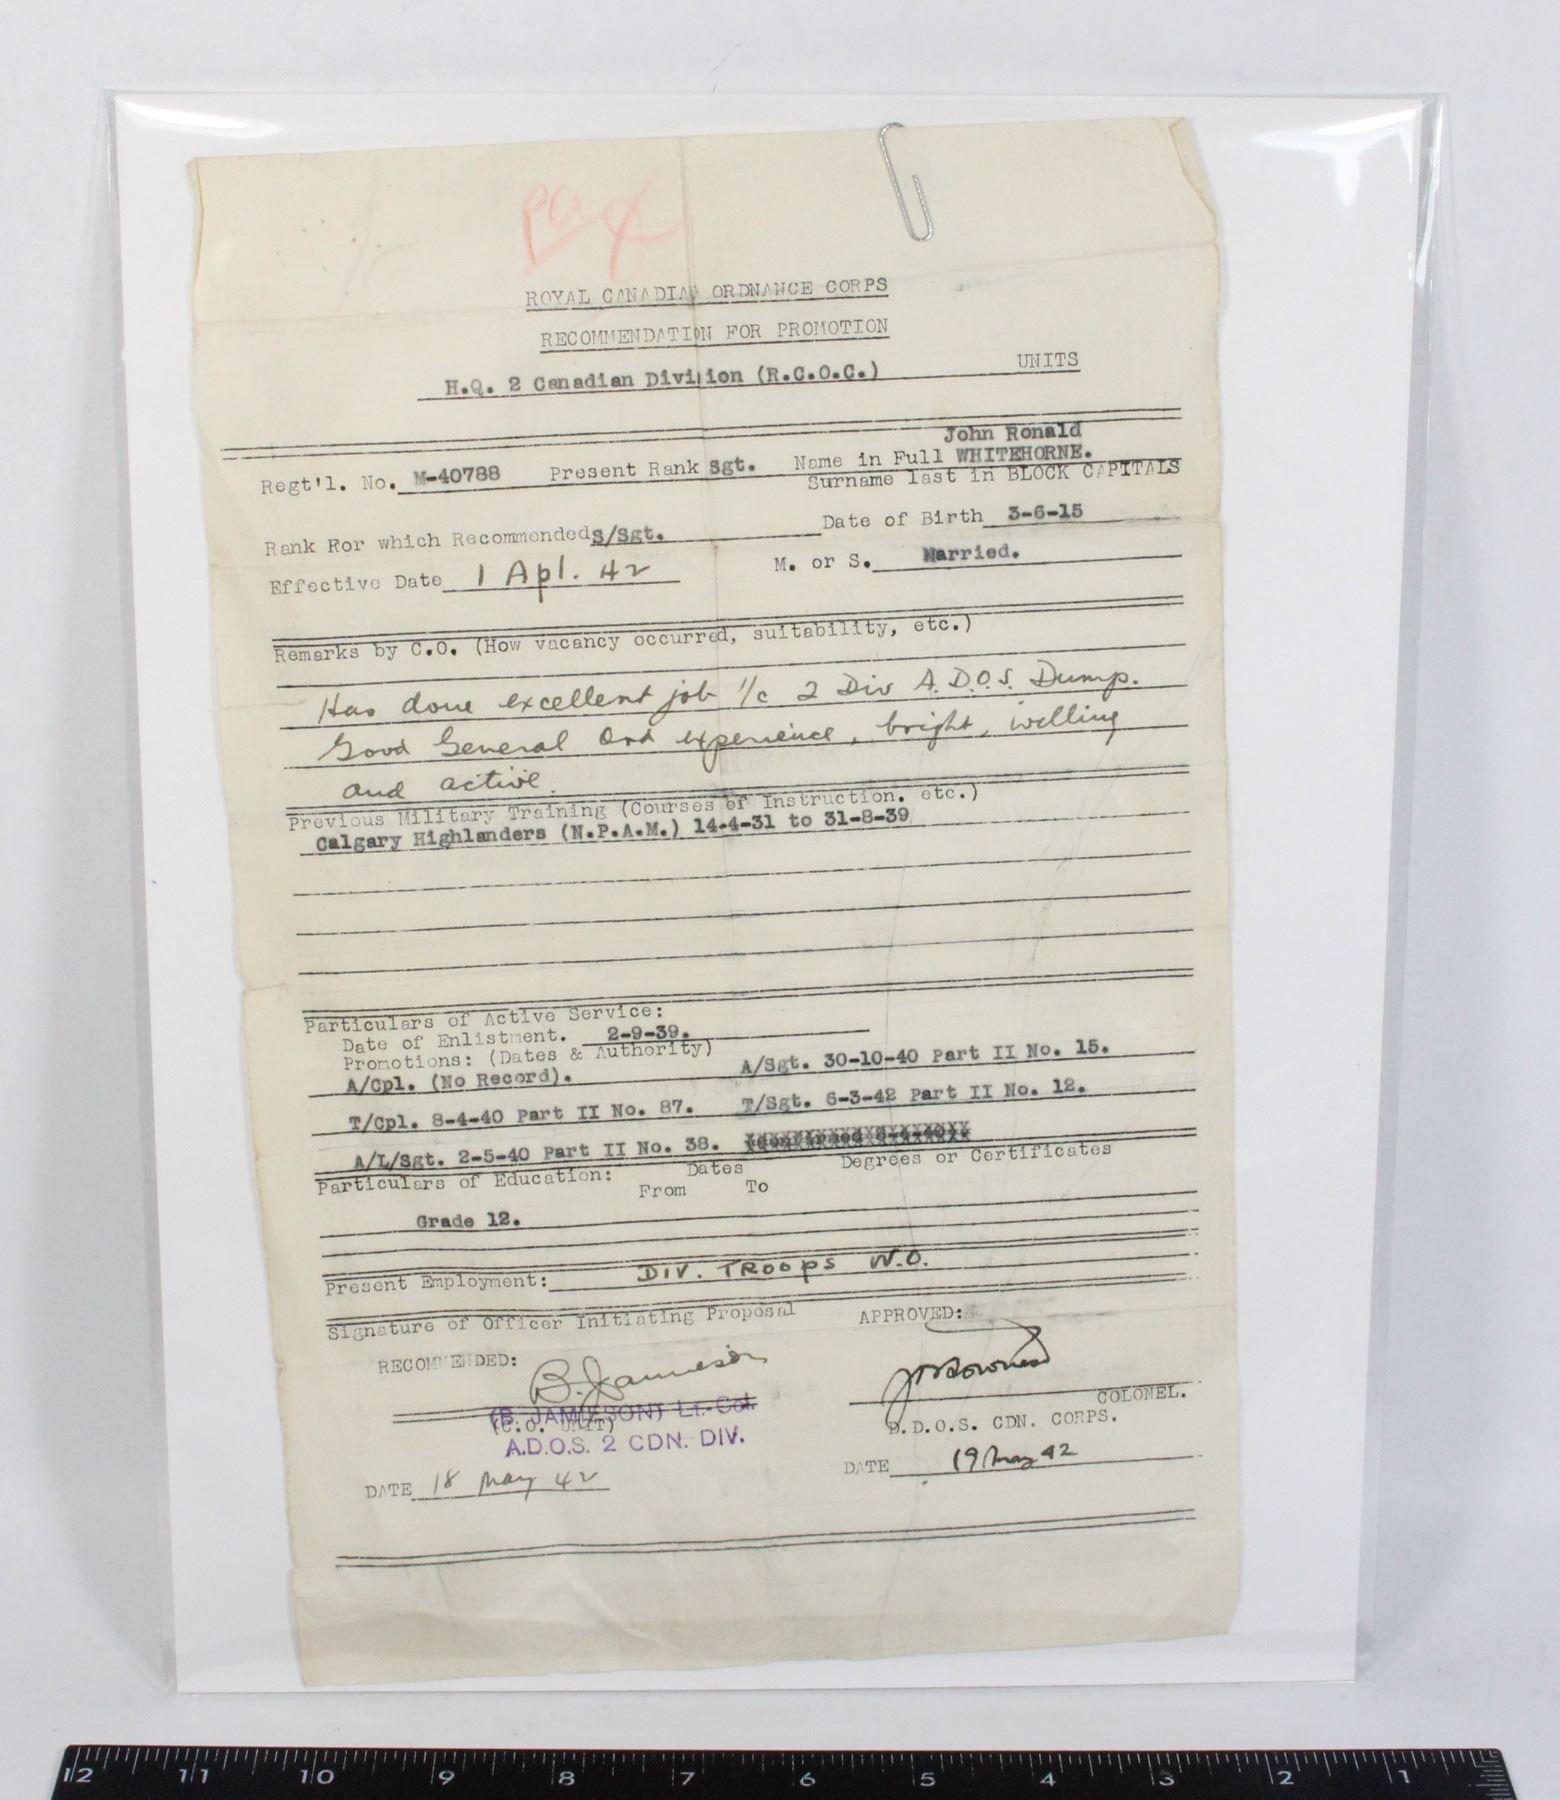 ROYAL CANADIAN ORDNANCE CORPS
RECOMMENDATION FOR PROMOTION
H.Q. 2 Canadian Division (R.C.O.C.) UNITS
John Ronald
Regt'l. No. M-40788 Present Rank Sgt. Name in Full WHITEHORNE.
Surname last in BLOCK CAPITALS
Rank For which Recommended S/Sgt. Date of Birth 3-6-15
Effective Date 1 Apl. 42 M. or S. Married.
Remarks by C.O. (How vacancy occurred, suitability, etc.)
Has done excellent job i/c 2 Div A.D.O.S. Dump.
Good General Ord experience, bright, willing
and active.
Previous Military Training (Courses of Instruction. etc.)
Calgary Highlanders (N.P.A.M.) 14-4-31 to 31-8-39
Particulars of Active Service:
Date of Enlistment. 2-9-39.
Promotions: (Dates & Authority)
A/Cpl. (No Record). A/Sgt. 30-10-40 Part II No. 15.
T/Cpl. 8-4-40 Part II No. 87. T/Sgt. 6-3-42 Part II No. 12.
A/L/Sgt. 2-5-40 Part II No. 38.
Particulars of Education: Dates Degrees or Certificates
From To
Grade 12.
Present Employment: DIV. TROOPS W.O.
Signature of Officer Initiating Proposal APPROVED:
RECOMMENDED: B. Jamieson
COLONEL.
(B. JAMIESON) Lt.-Col.
(C.O. UNIT) D.D.O.S. CDN. CORPS.
A.D.O.S. 2 CDN. DIV.
DATE 18 May 42 DATE 19 May 42
12 11 10 9 8 7 6 5 4 3 2 1